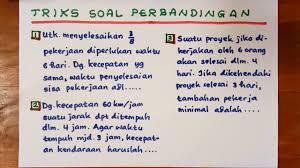 TRIKS SOAL PERBANDINGAN
1 Utk. menyelesaikan 3/8
pekerjaan diperlukan waktu
6 hari. Dg. kecepatan yg
sama, waktu penyelesaian
sisa pekerjaan adl....
2 Dg. kecepatan 60 km/jam
suatu jarak dpt ditempuh
dlm. 4 jam. Agar waktu
tempuh mjd. 3 jam, kecepat-
an kendaraan haruslah....
3 Suatu proyek jika di-
kerjakan oleh 6 orang
akan selesai dlm. 4
jam. Jika dikehendaki
proyek selesai 3 hari,
tambahan pekerja
minimal adalah....